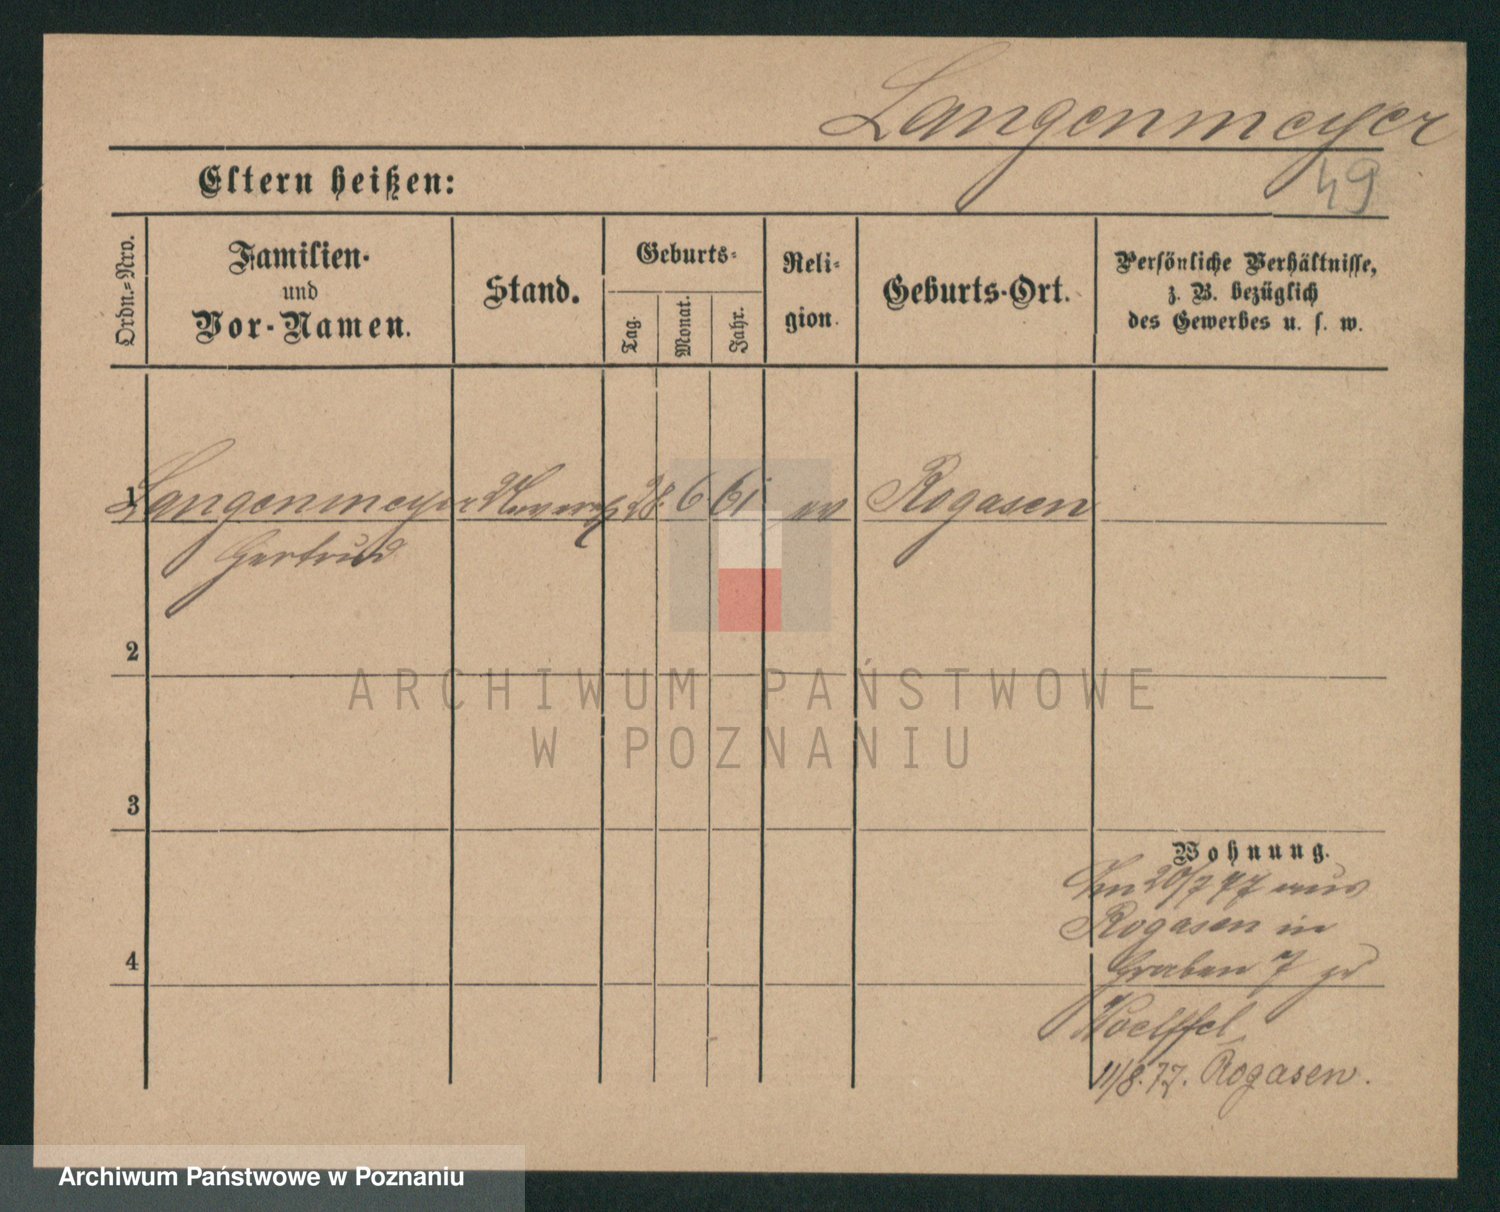 Langenmeyer
49
Eltern heißen:
Ordn.=Nro.
Familien-
und
Vor-Namen.
Stand.
Geburts-
Tag.
Monat.
Jahr.
Reli-
gion.
Geburts-Ort.
Persönliche Verhältnisse,
z. B. bezüglich
des Gewerbes u. s. w.
1 Langenmeyer 28. 6. 61 ev Rogasen
Gertrud
2
ARCHIWUM PAŃSTWOWE
W POZNANIU
3
Wohnung.
20/7 77 aus
Rogasen in
4
Graben 7 zu
Woelffel
11/8.77. Rogasen.
Archiwum Państwowe w Poznaniu